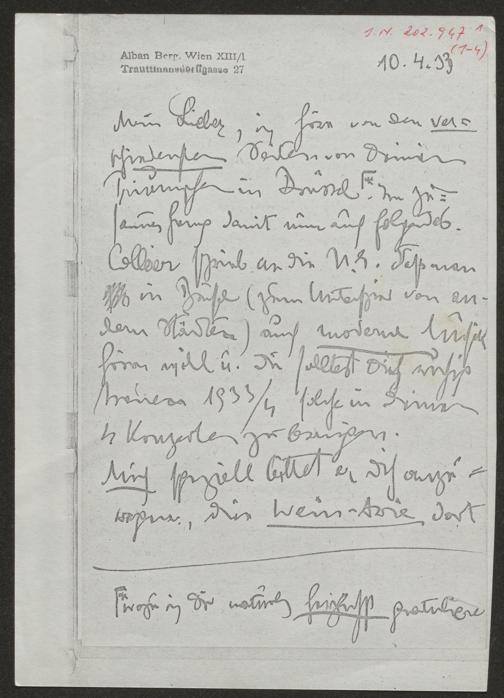 I.N. 202.947 1
(1-4)
Alban Berg, Wien XIII/1
Trauttmansdorffgasse 27
10.4.33
Mein Lieber, ich höre von den ver=
schiedensten Seiten von Deinen
Triumpfen in Brüssel. Im Zu=
sammenhang damit nun auf folgendes.
Collaer schrieb an die U.E. daß man
in Brüssel (zum Unterschied von an-
dern Städten) auch moderne Musik
hören will u. Du solltest Dich
1933/4 solche in Deinen
4 Konzerten zu bringen.
Mich speziell bittet er Dich anzu=
, die Wein-Arie dort
wozu ich Dir natürlich herzlichst gratuliere